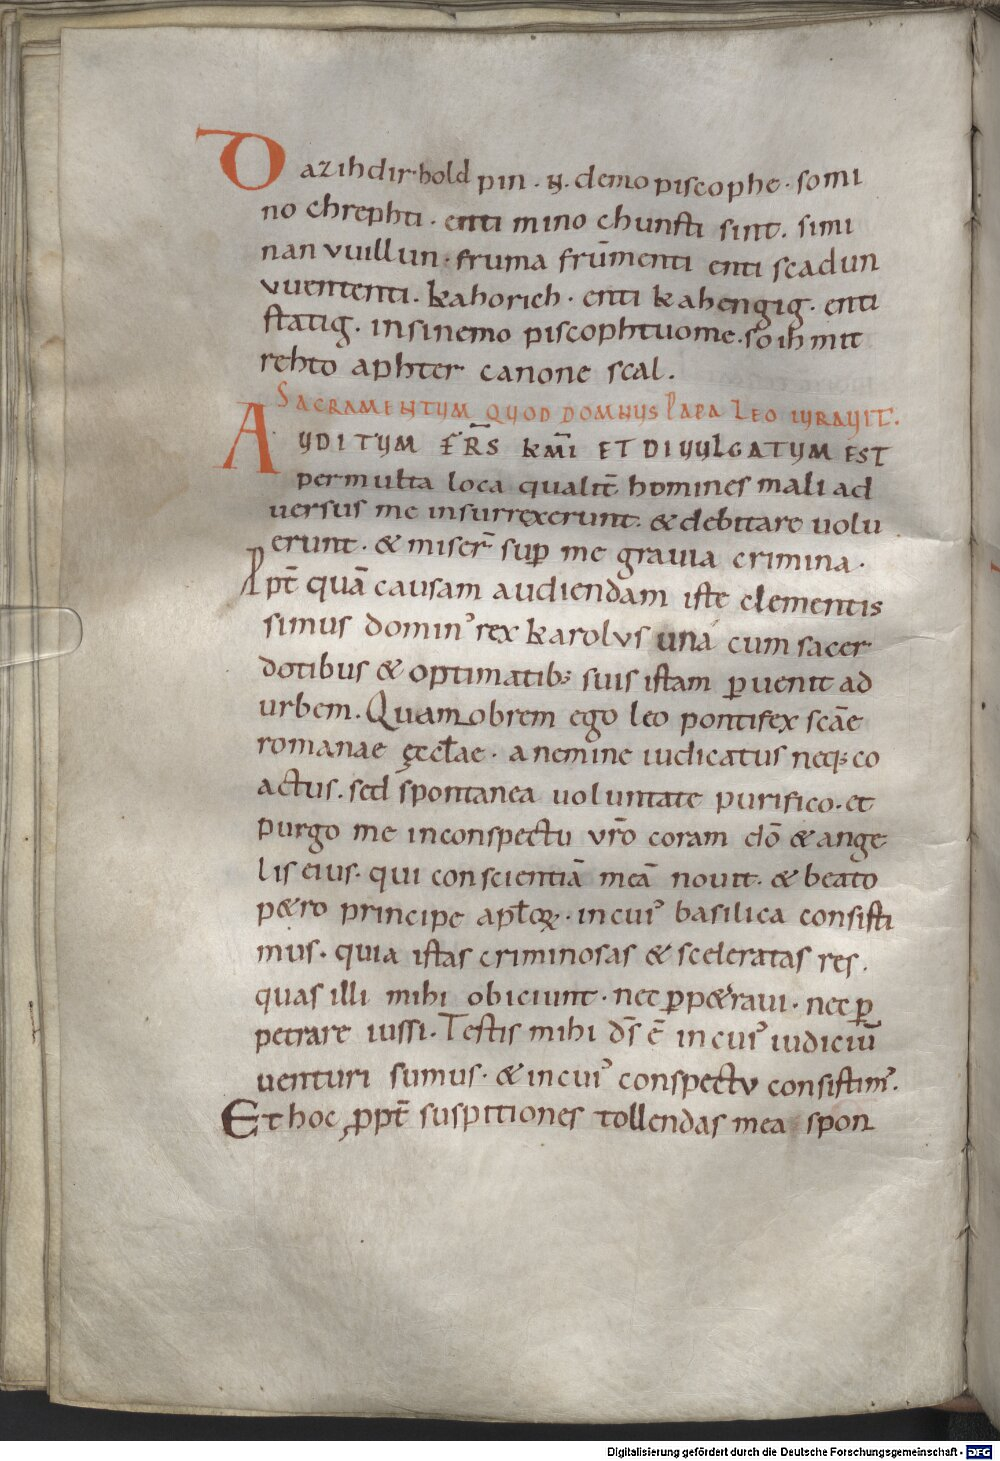 Dazihdir hold pin · N · demo piscophe · somi
no chrephti · enti mino chunsti sint · simi
nan vuillun · fruma frūmenti enti scadun
vuententi · kahorich · enti kahengig · enti
statig · in sinemo piscophtuome · so ih mit
rehto aphter canone scal .
SACRAMENTUM QUOD DOMNUS PAPA LEO IURAUIT .
AUDITUM FR̄S KMĪ ET DIUULGATUM EST
per multa loca qualit̄ homines mali ad
uersus me insurrexerunt · & debitare uolu
erunt · & miser̄ sup me grauia crimina ·
Ppt̄ quā causam audiendam iste clementis
simus domin' rex karolus una cum sacer
dotibus & optimatib; suis istam ꝑuenit ad
urbem . Quamobrem ego leo pontifex scāe
romanae ęccl̄ae · a nemine iudicatus neq; co
actus . sed spontanea uoluntate purifico · et
purgo me in conspectu vr̄o coram dō & ange
lis eius · qui conscientiā meā nouit · & beato
p&ro principe apl̄oꝝ · in cui' basilica consisti
mus · quia istas criminosas & sceleratas res .
quas illi mihi obiciunt · nec ꝑp&raui · nec ꝑ
petrare iussi . Testis mihi d̄s ē in cui' iudiciū
uenturi sumus · & in cui' conspectu consistim' .
Et hoc ꝓpt̄ suspitiones tollendas mea spon
Digitalisierung gefördert durch die Deutsche Forschungsgemeinschaft - DFG